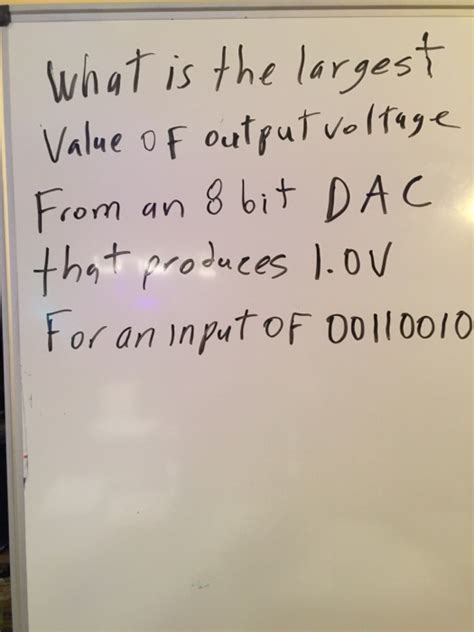 What is the largest
Value OF output voltage
From an 8 bit DAC
that produces 1.0V
For an input OF 00110010